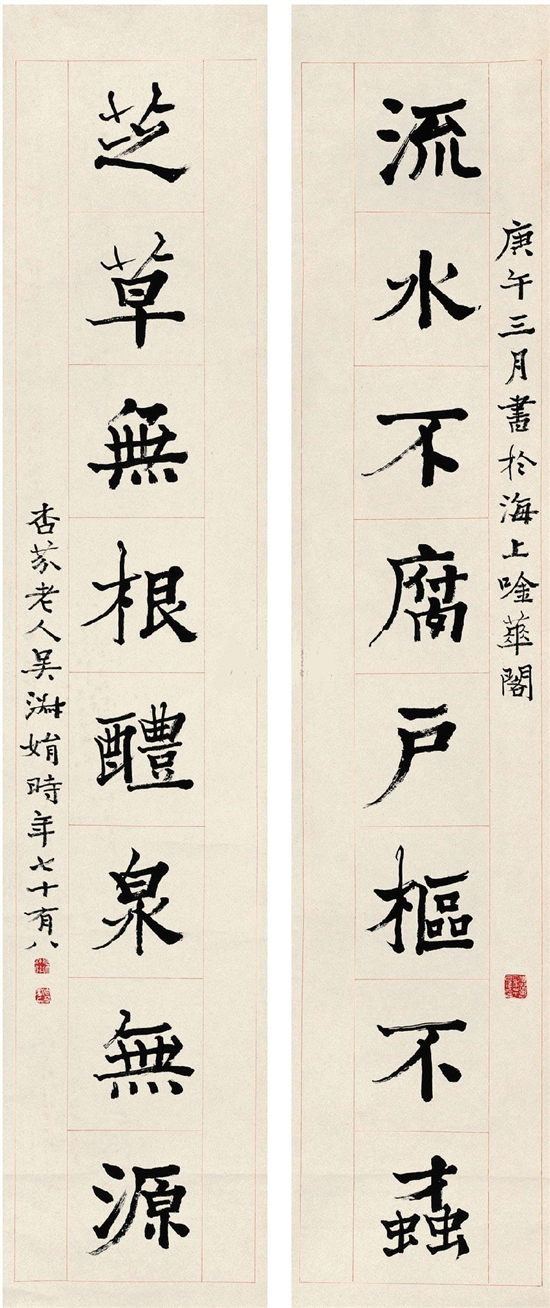 庚午三月書於海上唫華閣
流水不腐戶樞不蠹
芝草無根醴泉無源
杏芬老人吳淑娟時年七十有八